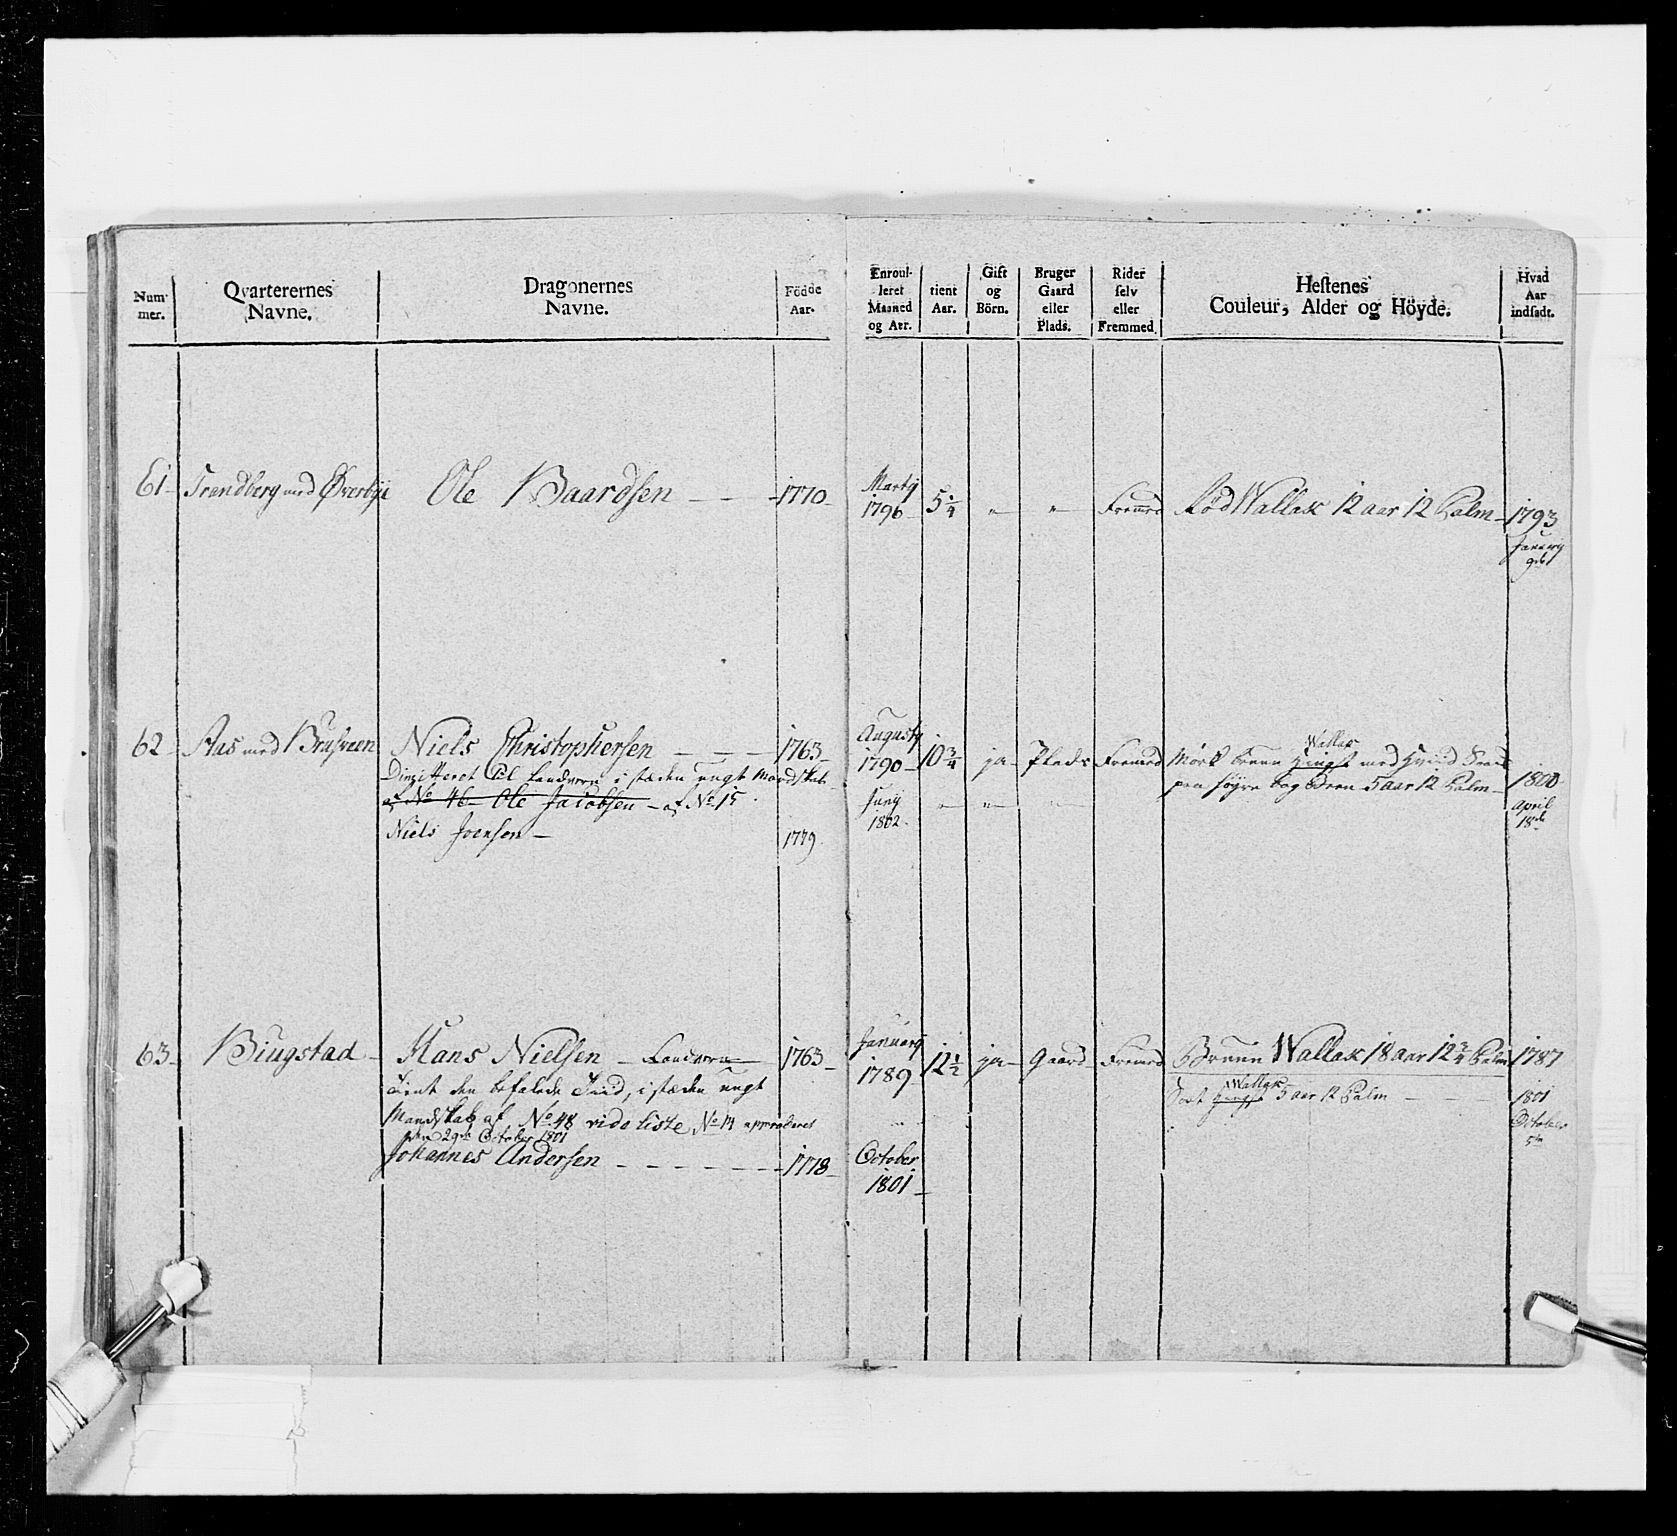 Num-
mer.
Qvarterernes
Navne.
Dragonernes
Navne.
Födde
Aar.
Enroul-
leret
Maaned
og Aar.
tient
Aar.
Gift
og
Börn.
Bruger
Gaard
eller
Plads.
Rider
selv
eller
Fremmed.
Hestenes
Couleur, Alder og Höyde.
Hvad
Aar
indsadt.
61 Trandberg med Øverbye Ole Baardsen 1770 Martij
1796 5 1/4 " " Fremed Rød Wallak 12 aar 12 Palm 1793
Januarij
62 Aas med Brusveen Niels Christophersen 1763 Augusty
1790 10 3/4 ja Plads Fremed Mørk bruun Hingst Wallak med Hviid
paa høyre bag Been 5 aar 12 Palm 1800
April
18de
til Landværn i stæden ungt Mandskab
af No 46 Ole Jacobsen af No 15
Niels Joensen 1779
Junij
1802 " " "
63 Biugstad Hans Nielsen Landværn 1763 Januarij
1789 12 1/2 ja Gaard Fremed Bruun Wallak 18 aar 12 3/4 Palm 1787
Tient den befalede Tiid, i stæden ungt
Mandskab af No 48 vide Liste No 14 approberet
den 29de October 1801
Johannes Andersen 1778 October
1801
Sort Hingst Wallak 5 aar 12 Palm 1801
October
5te